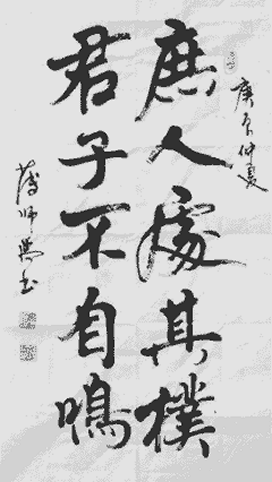 庚午仲夏
庶人處其樸
君子不自鳴